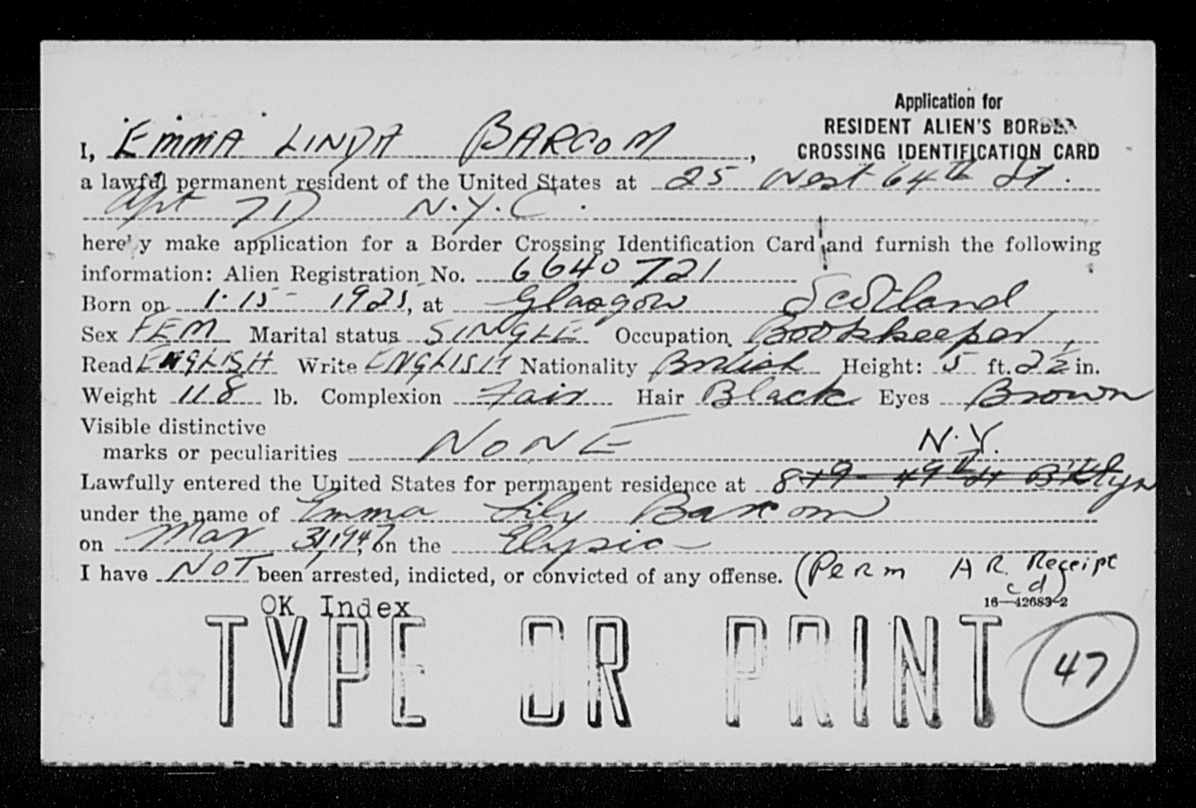 Application for
RESIDENT ALIEN'S BORDER
CROSSING IDENTIFICATION CARD
I, EMMA LINDA BARCOM,
a lawful permanent resident of the United States at 25 West 64th St.
Apt 7D N.Y.C.
hereby make application for a Border Crossing Identification Card and furnish the following
information: Alien Registration No. 6640721
Born on 1-15-1925, at Glasgow Scotland
Sex FEM Marital status SINGLE Occupation Bookkeeper,
Read ENGLISH Write ENGLISH Nationality British Height: 5 ft. 2½ in.
Weight 118 lb. Complexion Fair Hair Black Eyes Brown
Visible distinctive
marks or peculiarities NONE
N.Y.
Lawfully entered the United States for permanent residence at 819-49th St B'klyn
under the name of Emma Lily Barcom
on Mar 31, 1947, on the Elysia
I have NOT been arrested, indicted, or convicted of any offense. (Perm A R. Receipt
cd)
16—42683-2
OK Index
TYPE OR PRINT
47